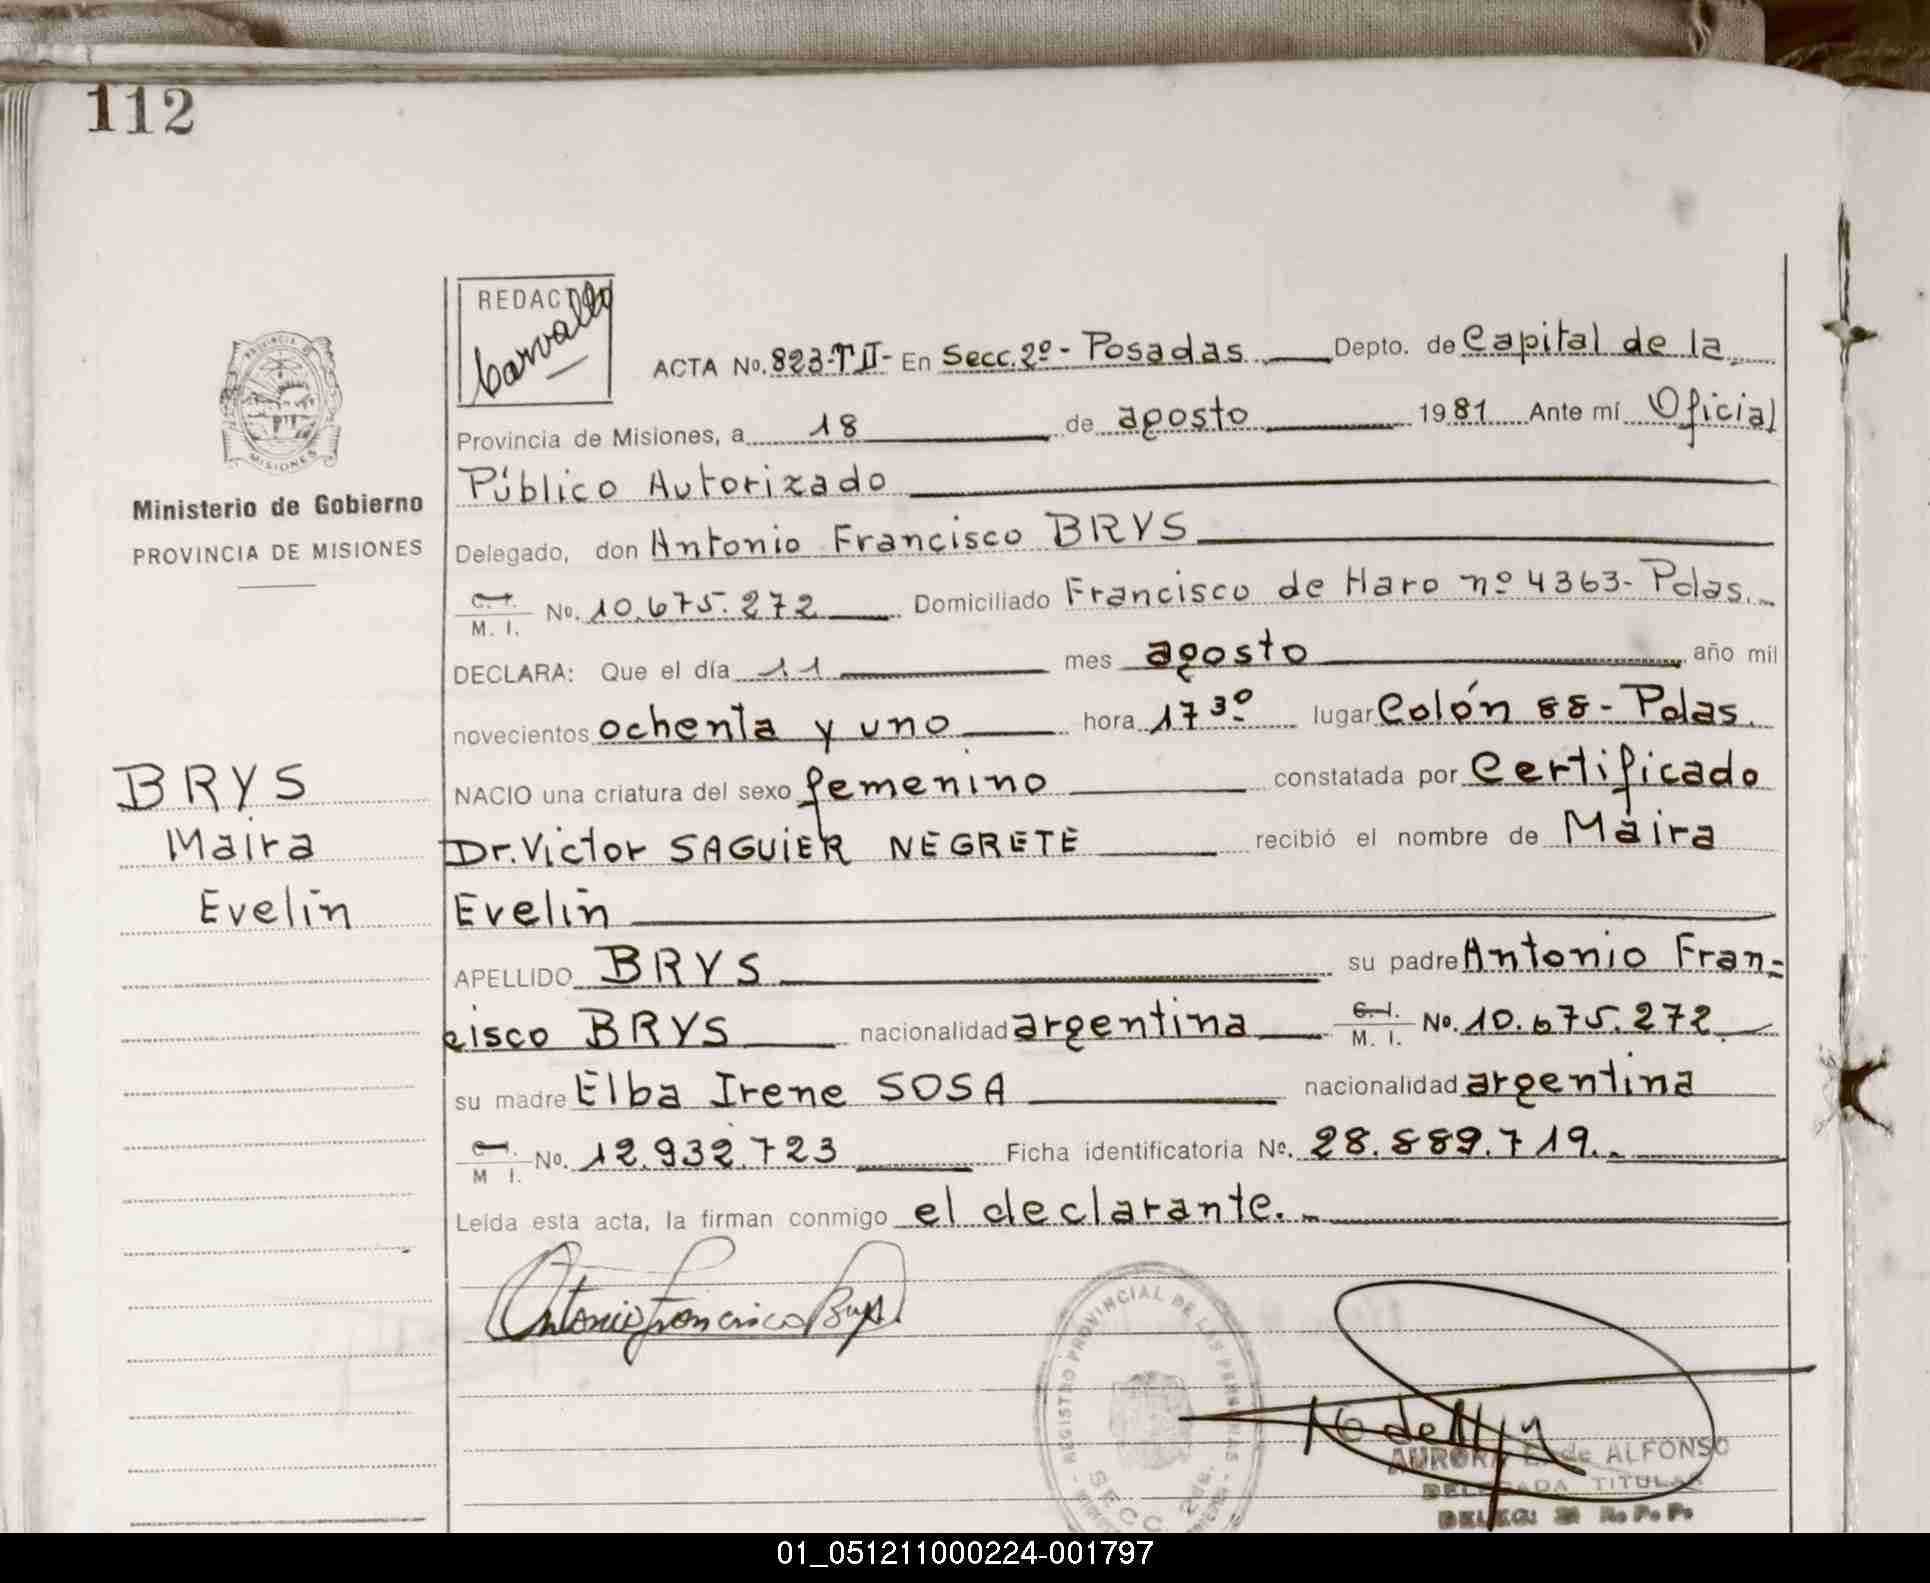 112
REDACTO
Carvallo
ACTA No. 823-T II- En Secc. 2º - Posadas Depto. de Capital de la
Provincia de Misiones, a 18 de agosto 1981 Ante mí Oficial
Público Autorizado
Delegado, don Antonio Francisco BRYS
C. I.
M. I. No. 10.675.272 Domiciliado Francisco de Haro nº 4363- Pdas.
DECLARA: Que el día 11 mes agosto año mil
novecientos ochenta y uno hora 17 30 lugar Colón 88 - Pdas.
NACIO una criatura del sexo femenino constatada por Certificado
Dr. Victor SAGUIER NEGRETE recibió el nombre de Maira
Evelin
APELLIDO BRYS su padre Antonio Fran-
cisco BRYS nacionalidad argentina C. I.
M. I. No. 10.675.272
su madre Elba Irene SOSA nacionalidad argentina
C. I.
M. I. No. 12.932.723 Ficha identificatoria No. 28.889.719.
Leída esta acta, la firman conmigo el declarante.
Antonio Francisco Brys
PROVINCIA
MISIONES
Ministerio de Gobierno
PROVINCIA DE MISIONES
BRYS
Maira
Evelin
REGISTRO PROVINCIAL DE LAS PERSONAS
SECC. 2da.
AURORA E. de ALFONSO
DELEGADA TITULAR
DELEG. 2ª R. P. P.
01_051211000224-001797